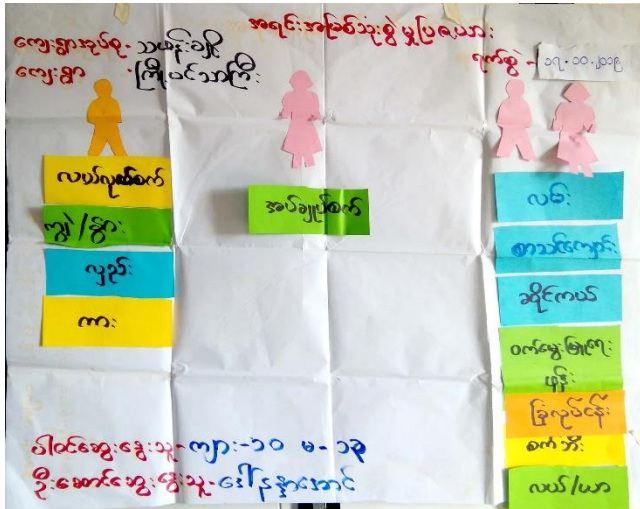 အရင်းအမြစ်သုံးစွဲမှုပြဇယား
ကျေးရွာအုပ်စု- သယန်းချို
ရက်စွဲ - ၁၇.၁၀.၂၀၁၉
ကျေးရွာ - ကြိုပင်သာကြီး
လယ်လုပ်စက်
ကျွဲ/နွား
လှည်း
ကား
အပ်ချုပ်စက်
လမ်း
စာသင်ကျောင်း
ဆိုင်ကယ်
ဝက်မွေးမြူရေး
ဖုန်း
ခြံလုပ်ငန်း
စက်ဘီး
လယ်/ယာ
ပါဝင်ဆွေးနွေးသူ-ကျား-၁၀ မ-၁၃
ဦးဆောင်ဆွေးနွေးသူ-ဒေါ်နန္ဒာအောင်